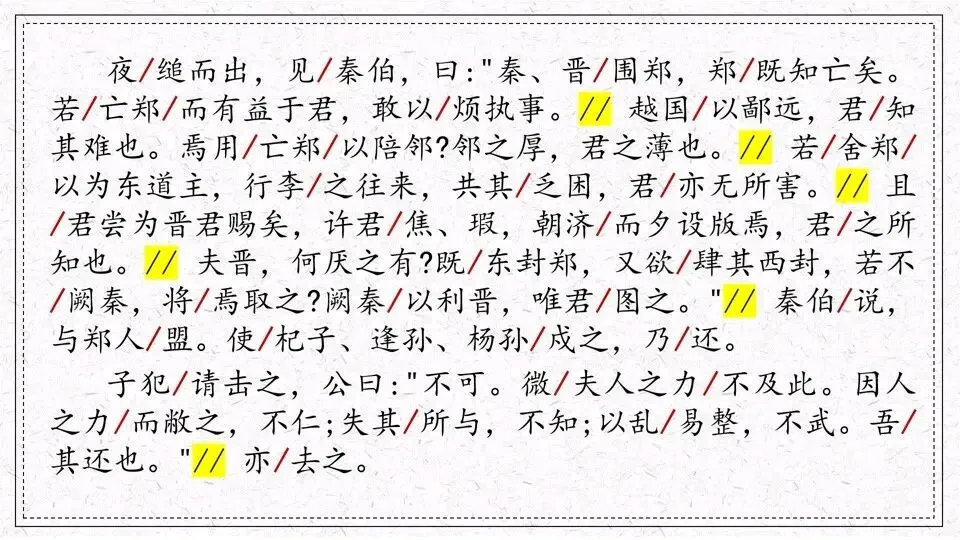 夜/缒而出，见/秦伯，曰:"秦、晋/围郑，郑/既知亡矣。
若/亡郑/而有益于君，敢以/烦执事。// 越国/以鄙远，君/知
其难也。焉用/亡郑/以陪邻?邻之厚，君之薄也。// 若/舍郑/
以为东道主，行李/之往来，共其/乏困，君/亦无所害。// 且
/君尝为晋君赐矣，许君/焦、瑕，朝济/而夕设版焉，君/之所
知也。// 夫晋，何厌之有?既/东封郑，又欲/肆其西封，若不
/阙秦，将/焉取之?阙秦/以利晋，唯君/图之。"// 秦伯/说，
与郑人/盟。使/杞子、逢孙、杨孙/戍之，乃/还。
子犯/请击之，公曰:"不可。微/夫人之力/不及此。因人
之力/而敝之，不仁;失其/所与，不知;以乱/易整，不武。吾/
其还也。"// 亦/去之。